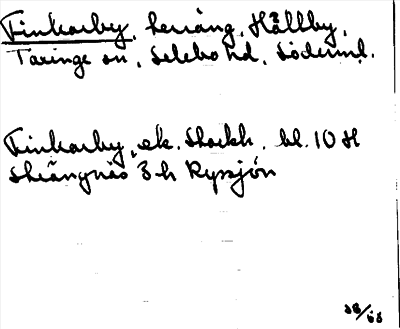 Finkarby, herräng, Hållby,
Taxinge sn, Selebo hd, Söderml.
Finkarby, ek. Stockh, bl. 10 H
Strängnäs 3 h Ryssjön